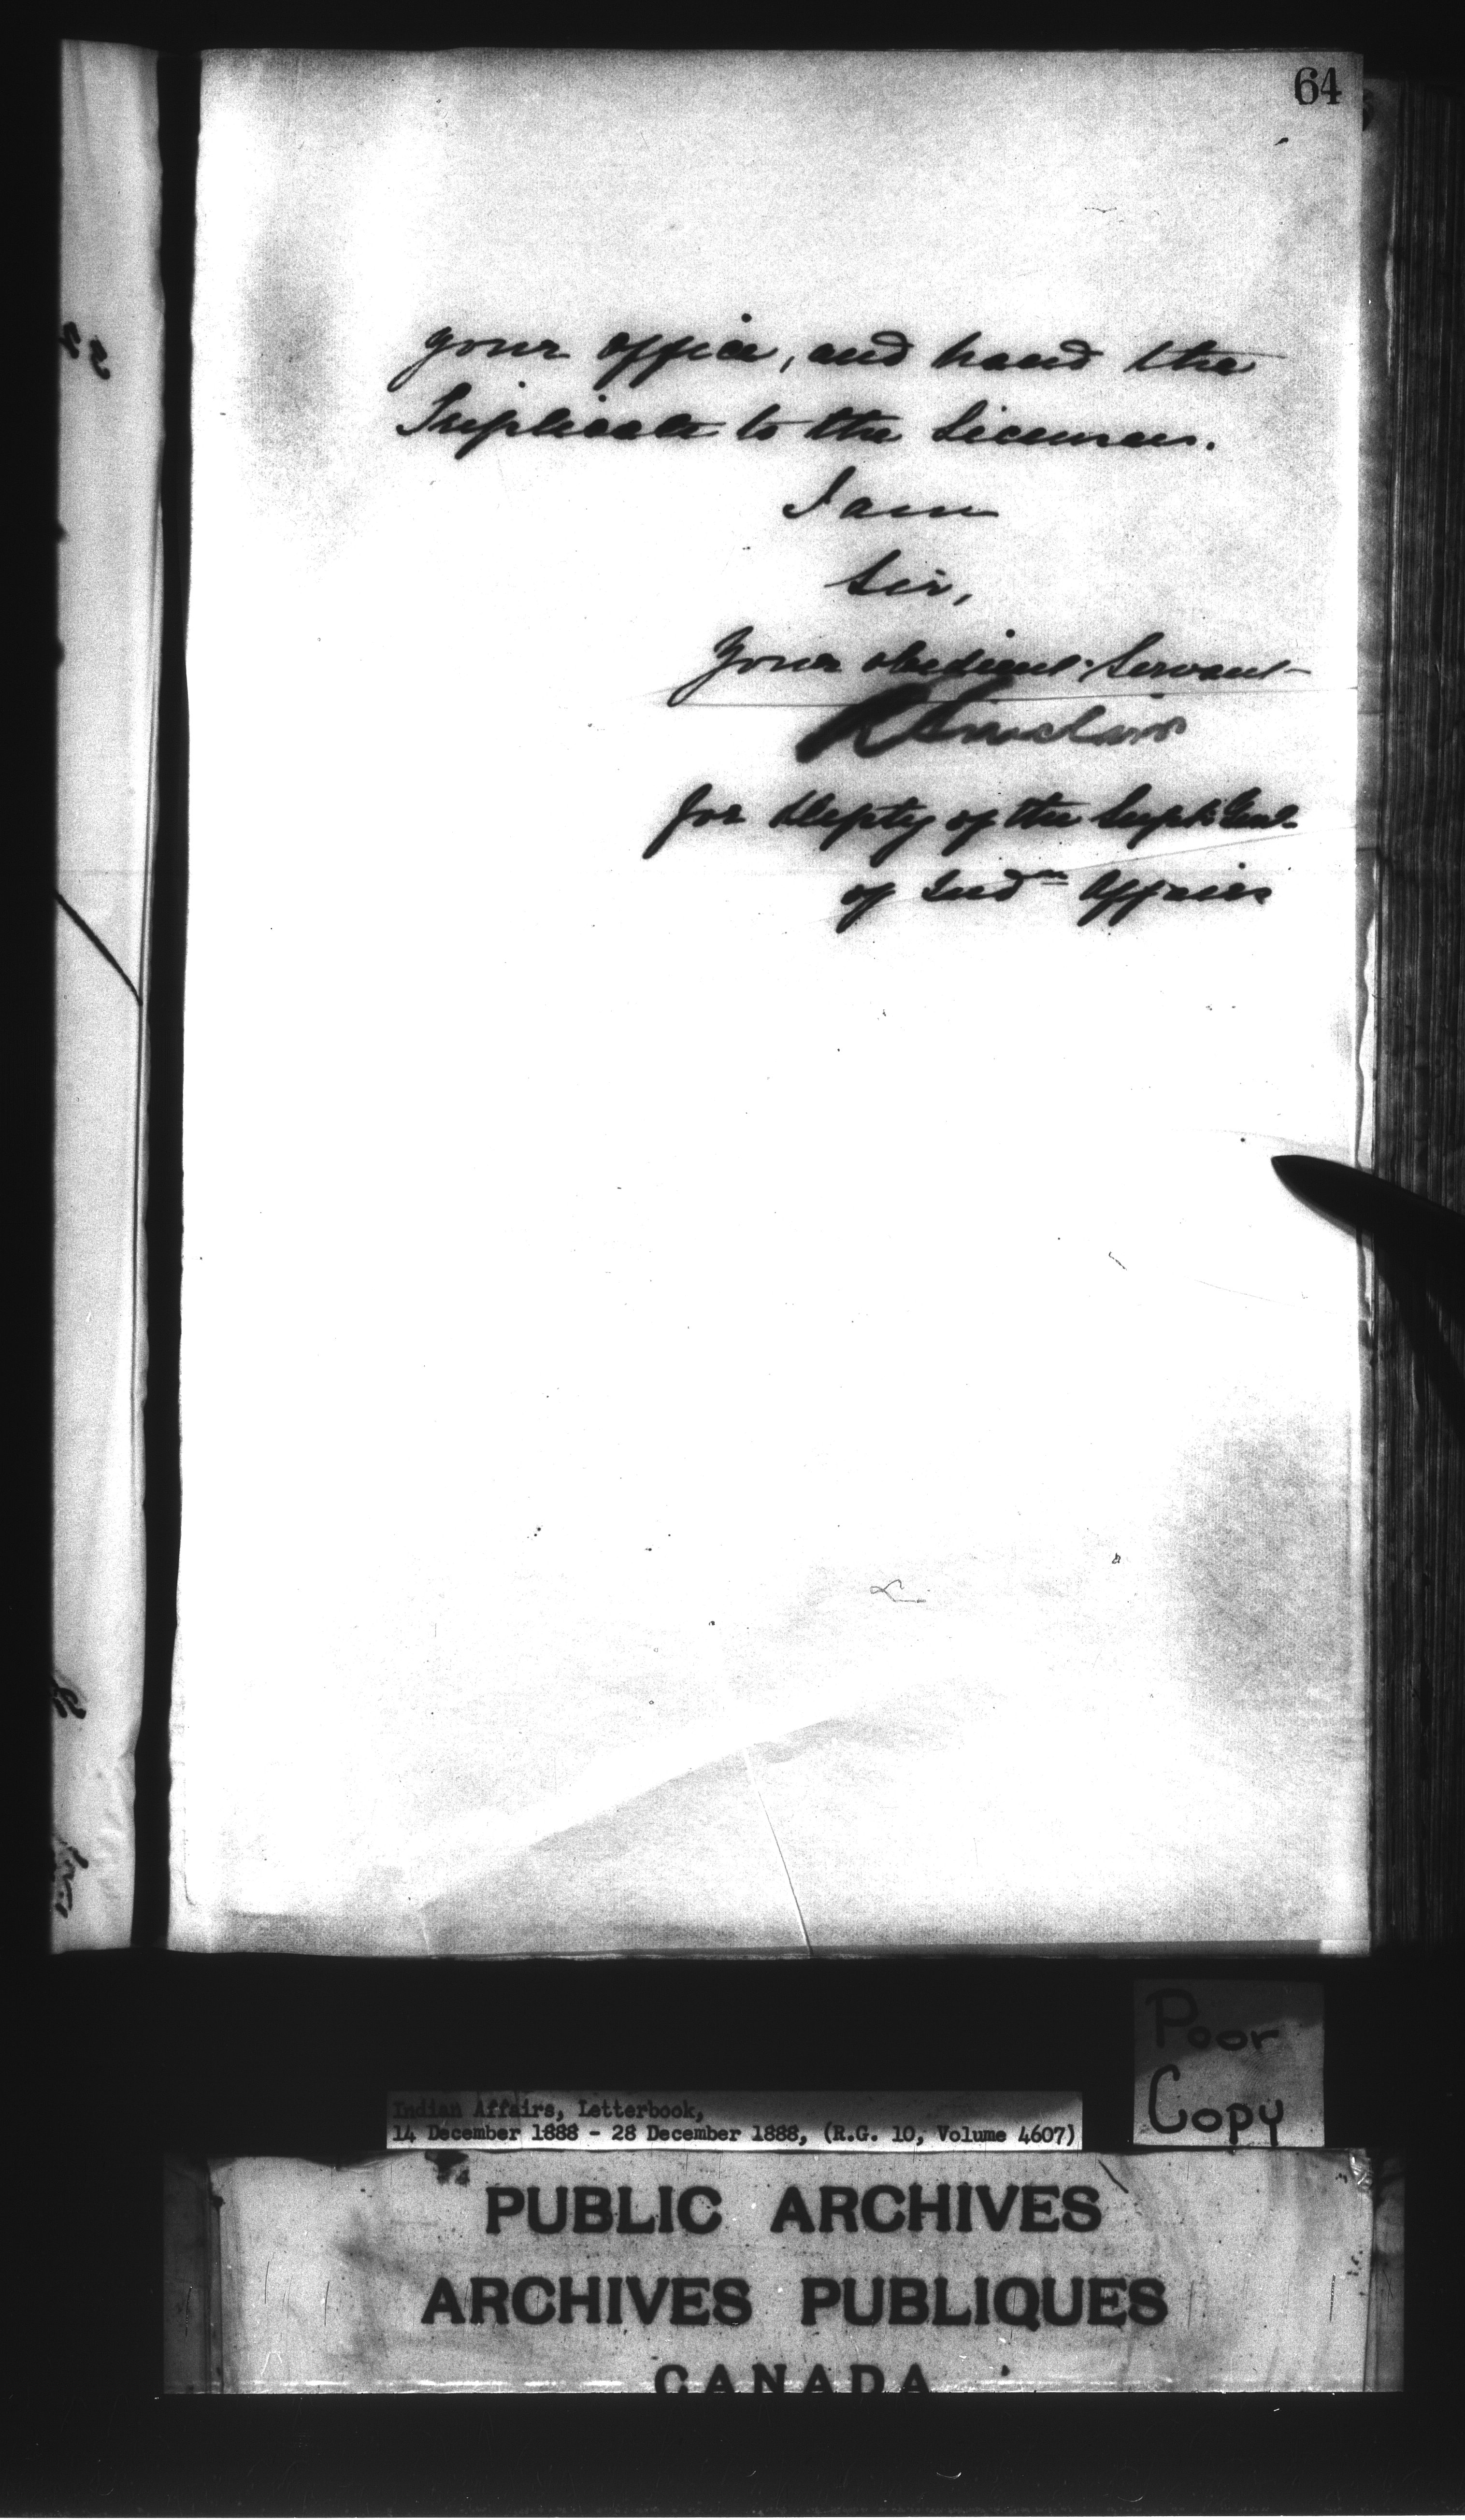 64
your office, and hand the
Triplicate to the Licensees.
I am
Sir,
Your obedient Servant
R Sinclair
for Depty of the Supt. Genl.
of Indn Affairs
Poor
Copy
Indian Affairs, Letterbook,
14 December 1888 - 28 December 1888, (R.G. 10, Volume 4607)
PUBLIC ARCHIVES
ARCHIVES PUBLIQUES
CANADA